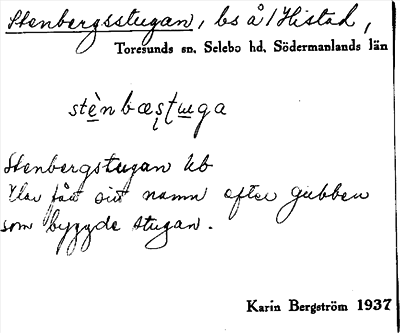 Stenbergsstugan, bs å / Histad,
Toresunds sn. Selebo hd. Södermanlands län
stènbæsʈɯga
Stenbergstugan kb
Har fått sitt namn efter gubben
som byggde stugan.
Karin Bergström 1937